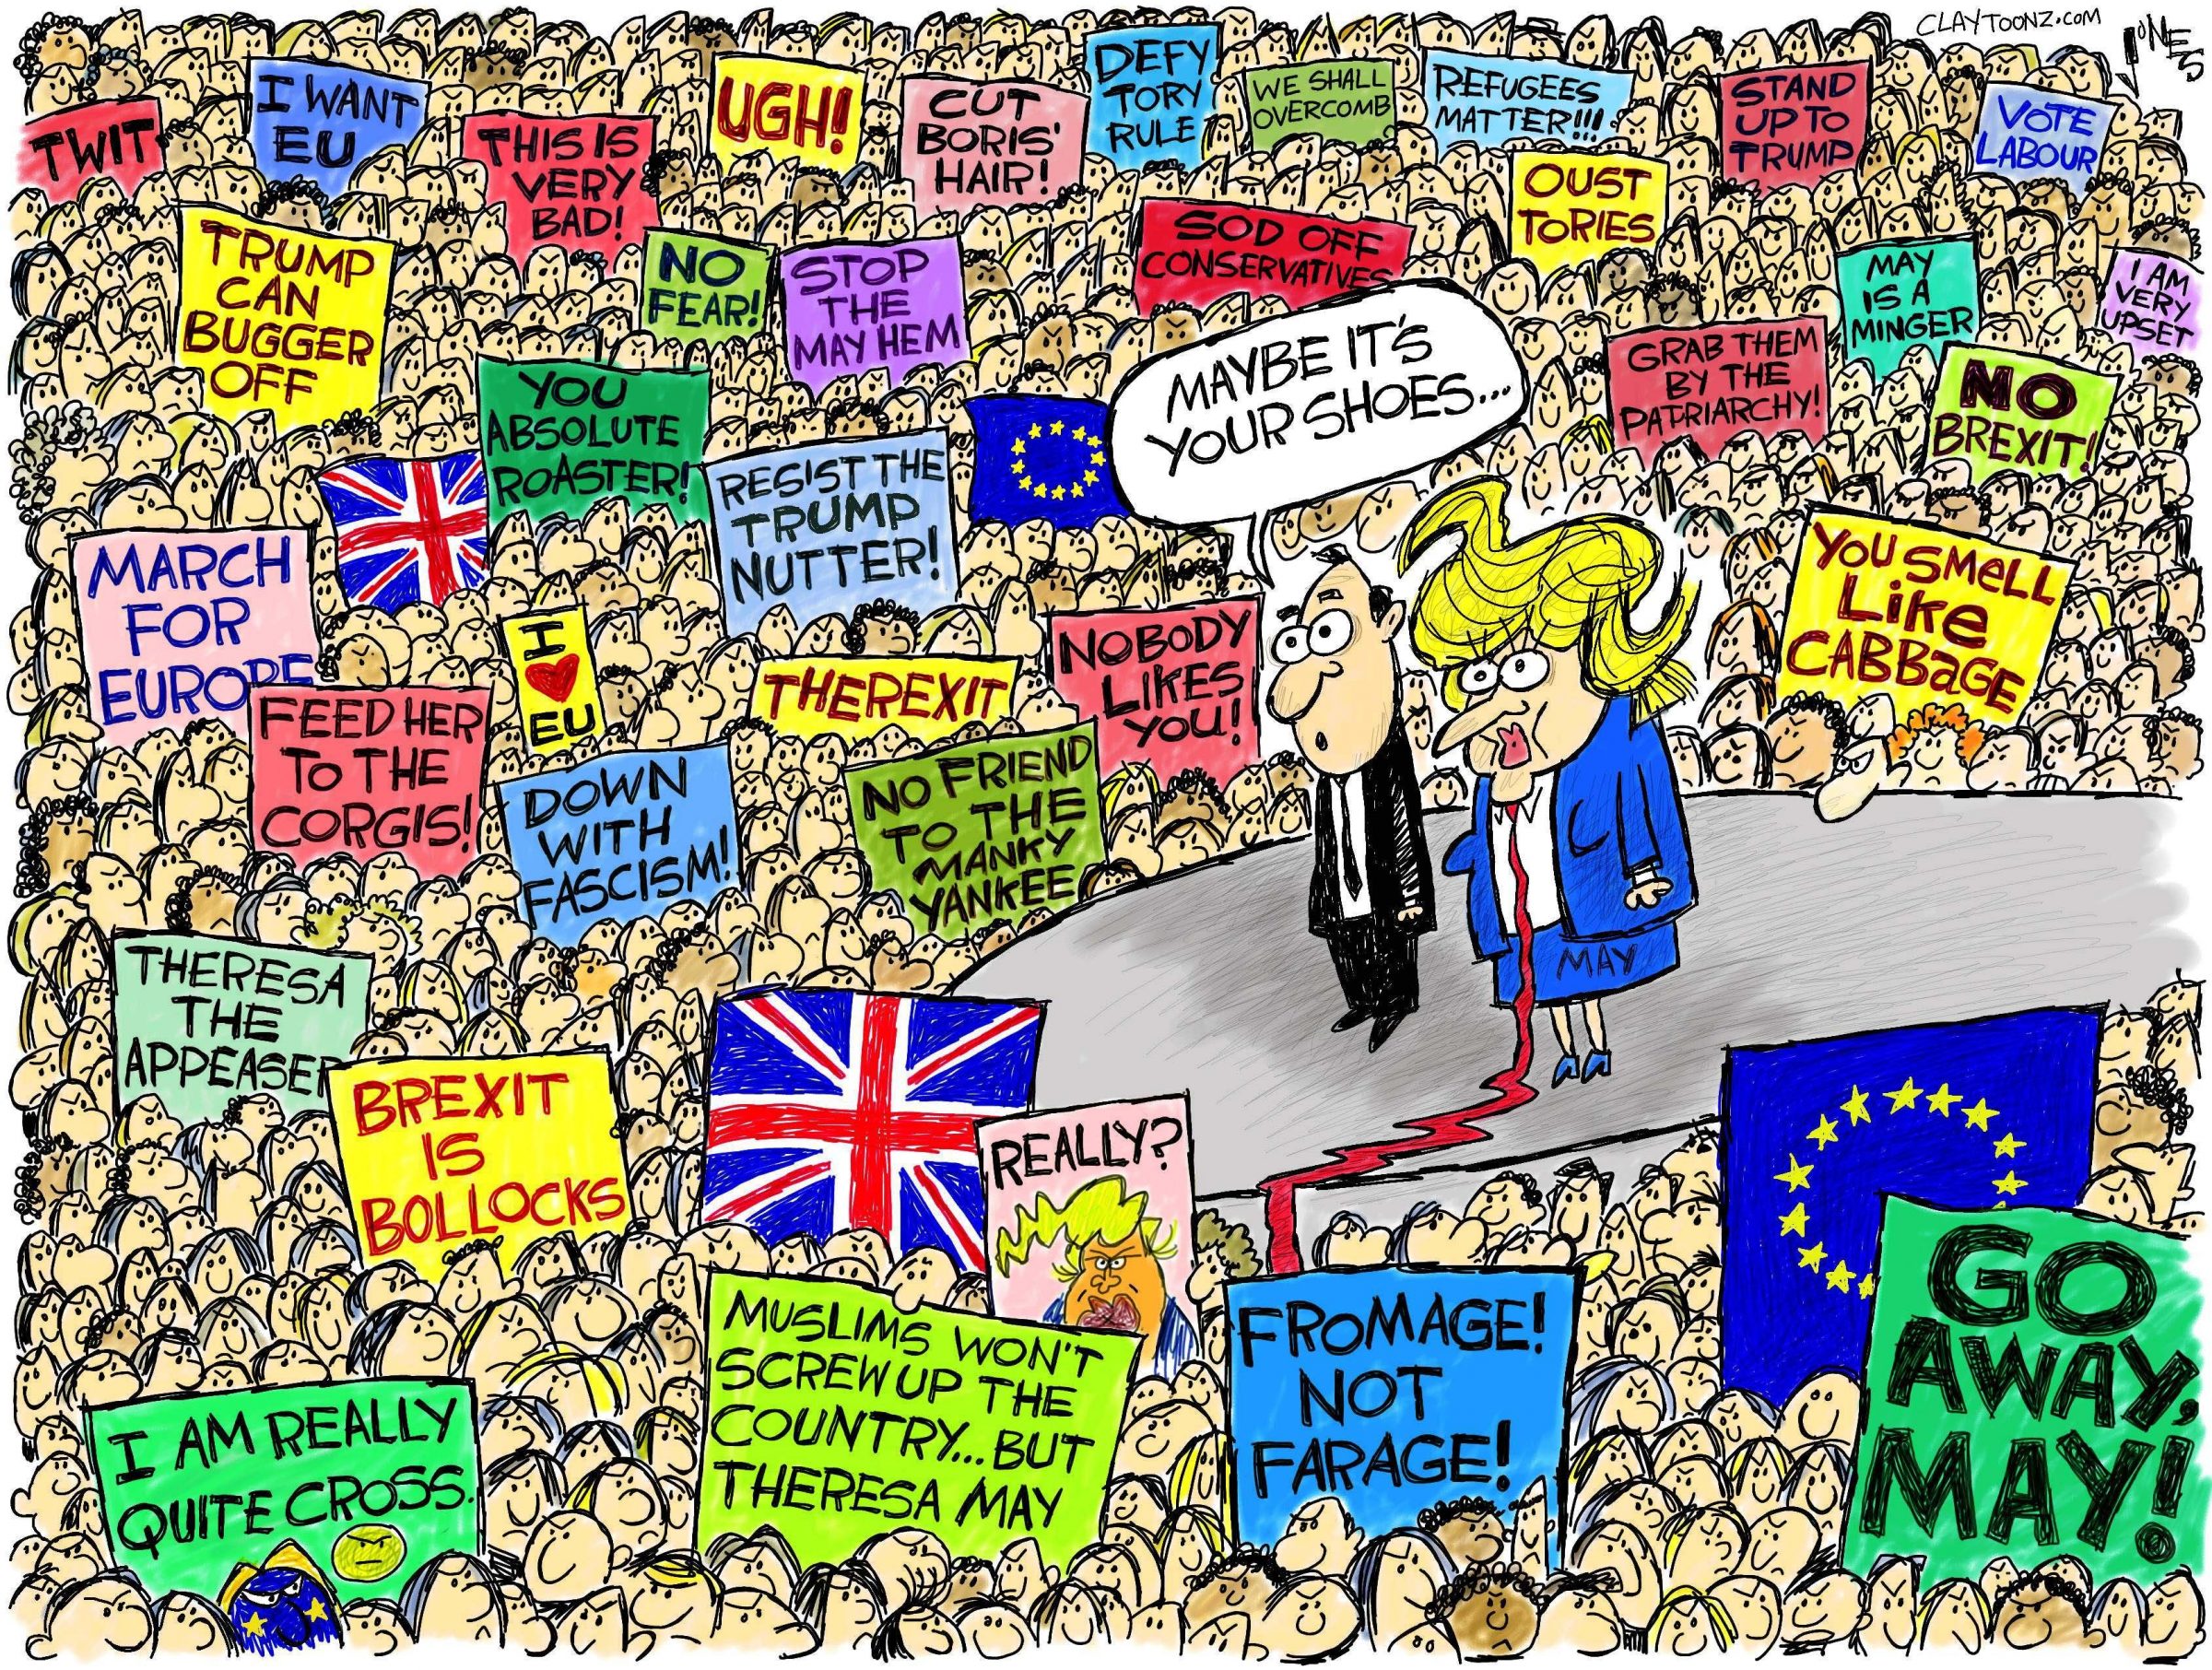 CLAYTOONZ.COM
JONES
TWIT
I WANT
EU
THIS IS
VERY
BAD!
UGH!
CUT
BORIS'
HAIR!
DEFY
TORY
RULE
WE SHALL
OVERCOMB
REFUGEES
MATTER!!!
STAND
UP TO
TRUMP
VOTE
LABOUR
TRUMP
CAN
BUGGER
OFF
NO
FEAR!
STOP
THE
MAYHEM
SOD OFF
CONSERVATIVES
OUST
TORIES
MAY
IS A
MINGER
I AM
VERY
UPSET
YOU
ABSOLUTE
ROASTER!
MAYBE IT'S
YOUR SHOES...
GRAB THEM
BY THE
PATRIARCHY!
NO
BREXIT!
RESIST THE
TRUMP
NUTTER!
MARCH
FOR
EUROPE
I
EU
THEREXIT
NOBODY
LIKES
YOU!
YOU SMELL
LIKE
CABBAGE
FEED HER
TO THE
CORGIS!
DOWN
WITH
FASCISM!
NO FRIEND
TO THE
MANKY
YANKEE
MAY
THERESA
THE
APPEASER
BREXIT
IS
BOLLOCKS
REALLY?
GO
AWAY,
MAY!
MUSLIMS WON'T
SCREW UP THE
COUNTRY...BUT
THERESA MAY
FROMAGE!
NOT
FARAGE!
I AM REALLY
QUITE CROSS.